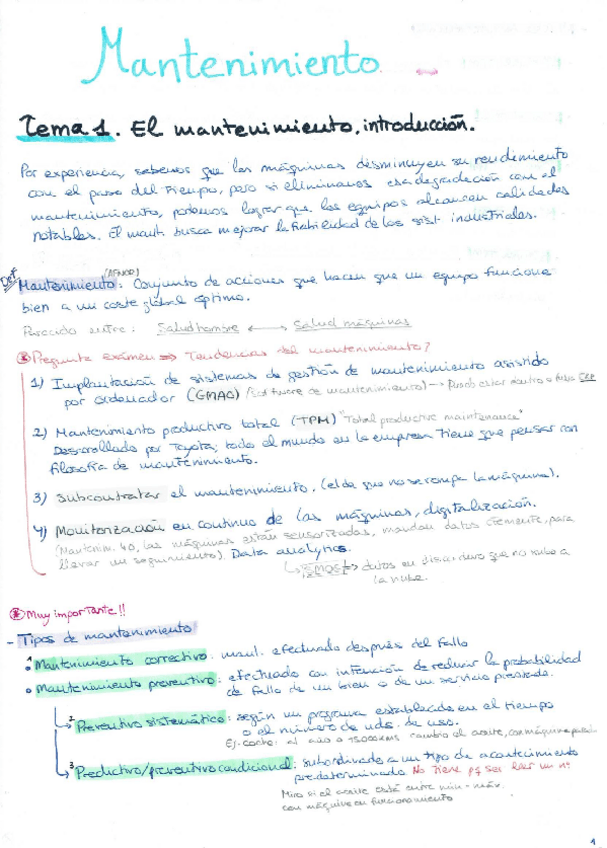 Mantenimiento
Tema 1. El mantenimiento, introducción.
Por experiencia, sabemos que las máquinas desminuyen su rendimiento
con el paso del tiempo, pero si eliminamos esa degradación con el
mantenimiento, podemos lograr que los equipos alcancen calidades
notables. El mant. busca mejorar la fiabilidad de los sist. industriales.
Def
(AFNOR)
Mantenimiento: Conjunto de acciones que hacen que un equipo funcione
bien a un coste global óptimo.
Parecido entre: Salud hombre ⟷ Salud máquinas
Pregunta exámen ⇒ Tendencias del mantenimiento?
1) Implantación de sistemas de gestión de mantenimiento asistido
por ordenador (GMAO) (software de mantenimiento) → Puede estar dentro o fuera ERP
2) Mantenimiento productivo total (TPM) "Total productive maintenance"
Desarrollado por Toyota; todo el mundo en la empresa tiene que pensar con
filosofía de mantenimiento.
3) Subcontratar el mantenimiento. (el día que no se rompa la máquina).
4) Monitorización en continuo de las máquinas, digitalización.
(Mantenim. 4.0, las máquinas están sensorizadas, mandan datos para
llevar un seguimiento). Data analytics.
datos en disco duro que no sube a
la nube.
Muy importante!!
- Tipos de mantenimiento
1 Mantenimiento correctivo: mant. efectuado después del fallo
Mantenimiento preventivo: efectuado con intención de reducir la probabilidad
de fallo de un bien o de un servicio prestado.
2 Preventivo sistemático: según un programa establecido en el tiempo
o el número de uds. de uso.
Ej. coche: al año o 15000kms cambio el aceite, con máquina parada
3 Predictivo/preventivo condicional: subordinado a un tipo de acontecimiento
predeterminado. No tiene pq ser leer un nº
Miro si el aceite está entre min - máx.
con máquina en funcionamiento
1